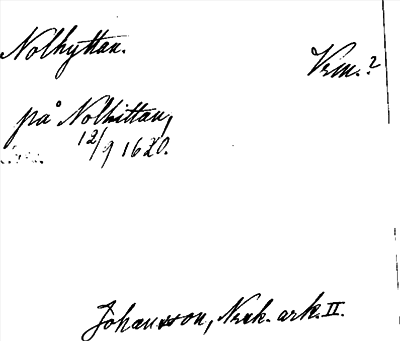 Nolhyttan. Vrm.?
på Nolhittan,
12/9 1620.
Johansson, Nerk. ark. II.